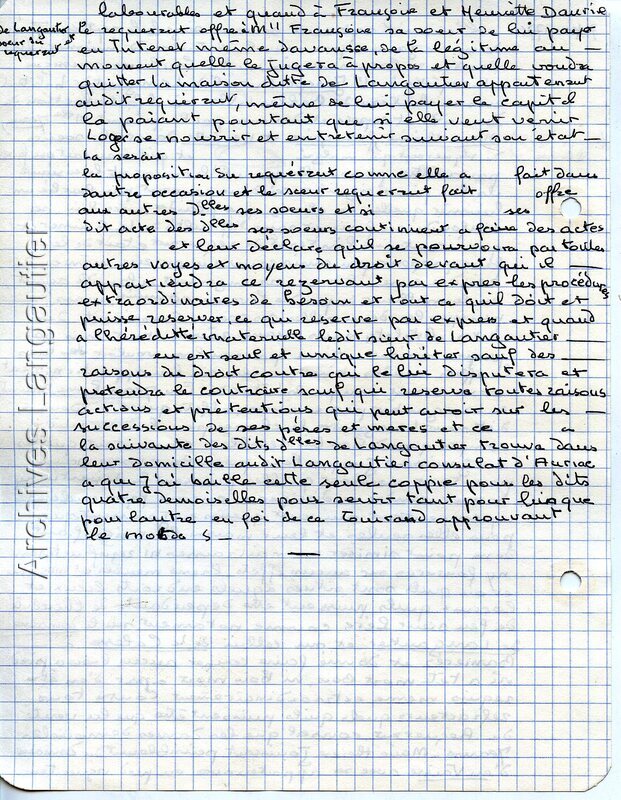 labourables et quand à Françoise et Henriette Daurie
de Langautier
soeur du
requerant et
le requerant offre à Mlle Françoise sa soeur de lui payer
en Interet même davansse de la légitime au —
moment quelle le jugera à propos et quelle voudra
quitter la maison ditte de Langautier appartenant
audit requerant, même de lui payer le capital
la paiant pourtant que si elle veut venir
Loger se nourrir et entretenir suivant son état —
La serait
la proposition du requérant comme elle a fait dans
dautre occasion et le soeur requerant fait offre
aux autres dlles ses soeurs et si ses
dit acte des dlles ses soeurs continuent a faire des actes
et leur déclare quil se pourvoira par toutes
autres voyes et moyens du droit devant qui il —
appartiendra ce rezervant par expres les procédures
extraordinaires de besoin et tout ce quil doit et
puisse reserver, ce qui reserve par expres et quand
a lhérédité maternelle ledit sieur de Langautier —
en est seul et unique hériter sauf des —
raisons du droit contre qui le lui disputera et
pretendra le contraire sauf qui reserve toutes raisons
actions et prétentions qui peut avoir sur les —
successions de ses pères et meres et ce a
la suivante des dits dlles de Langautier trouvé dans
leur domicille audit Langautier consulat d'Auriac
a qui j'ai baillé cette seule coppie pour les dits
quatre demoiselles pour servir tant pour lune que
pour lautre en foi de ce Touirand approuvant
le mot de S —
Archives Langautier